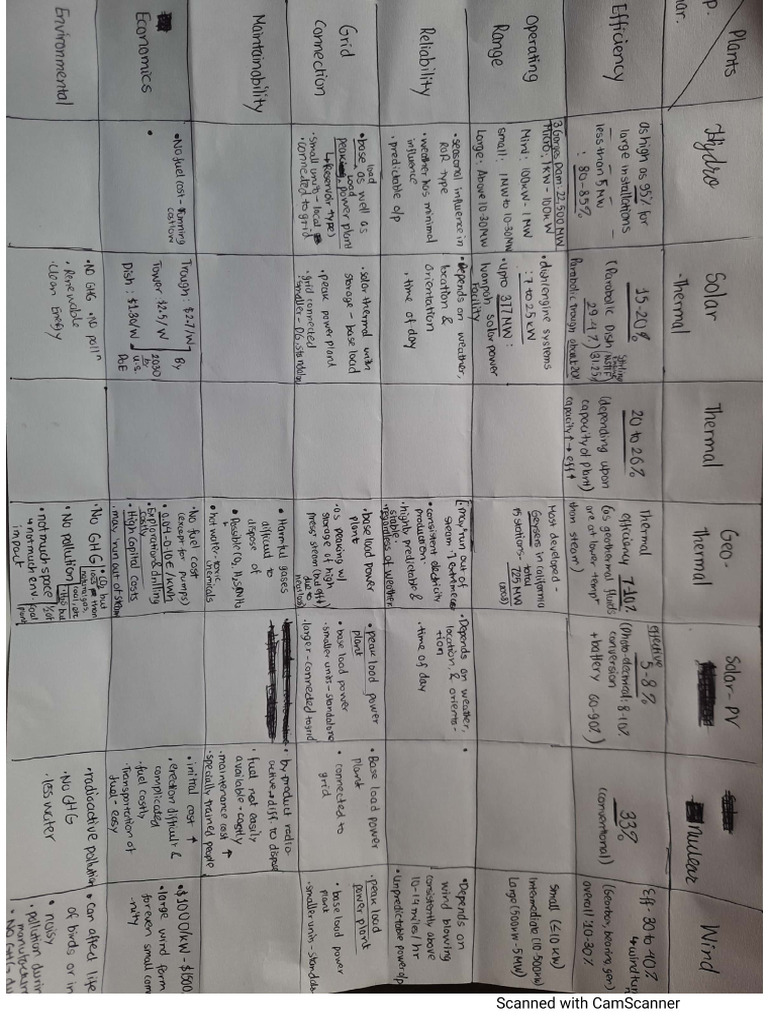 Plants
Hydro
Solar
-Thermal
Thermal
Geo-
thermal
Solar-PV
Nuclear
Wind
Efficiency
As high as 95% for
large installations
less than 5 MW
: 80-85%
15-20%
(Parabolic Dish
29-
31.25%
Parabolic Trough about 20%
20 to 26%
(depending upon
capacity of plant)
capacity↑ → eff↑
Thermal
efficiency 7-10%
(as geothermal fluids
are at lower tempr
than steam)
effective
5-8%
(Photo-decimal: 8-10%
conversion
+ battery 60-90%)
33%
(conventional)
Eff- 30 to 40%
(Gearbox, bearing, gen)
overall 10-30%
Operating
Range
3 Gorges Dam: 22,500 MW
Micro: 1KW - 100KW
Mini: 100KW-1 MW
small: 1MW to 10-30MW
large: Above 10-30MW
• dish/engine systems
: 7 to 25 KW
• upto 377 MW :
Ivanpah solar power
Facility
Most developed -
Geysers in California
15 stations- total 725 MW
Small (≤10 KW)
Intermediate (10-500KW)
Large (500KW-5MW)
Reliability
• seasonal influence in
ROR type
• weather has minimal
influence
• predictable o/p
• Depends on weather,
location &
orientation
• time of day
[may run out of
steam
• consistent electricity
production.
• highly predictable &
stable.
regardless of weather
• Depends on weather,
location, & orienta-
tion
• time of day
•
• Depends on
wind blowing
consistently above
10-14 miles/hr
• Unpredictable power o/p
Grid
Connection
• base load as well as
peak load power plant
↳ Reservoir type)
• small units - local
• connected to grid
• solar thermal with
storage - base load
• peak power plant
• grid connected
• smaller - DG, standalone
• base load power
plant
• as peaking w/
storage of high
press' steam (but
heat loss)
• peak load power
plant
• base load power
• smaller units - standalone
• larger - connected to grid
• Base load power
plant
• connected to
grid
• peak load
power plant
• base load power
plant
• smaller units - standalo
Maintainability
• Harmful gases
difficult to
dispose of
• Possible CO2, H2S, NH3
• hot water - toxic
chemicals
• by product radio-
active → diff. to dispose
• fuel not easily
available - costly
• maintenance cost ↑
• specially trained people
Economics
• No fuel cost - running
cost low
•
Trough: $2.7/W
Tower $2.5/W
Dish: $1.80/W
By
2030
by
U.S.
DoE
• No fuel cost
(except for pumps)
• 0.04-0.10 € /kWh
• Exploration & drilling
costly
• High Capital Costs
• may 'run out of steam'
• initial cost ↑
• erection difficult &
complicated
• fuel costly
• Transportation of
fuel - easy
• $1000/kW - $1500
• large wind farm
for even small com
-nity
Environmental
• No GHG • No polln
• Renewable
• Clean Energy
• No GHG
• No pollution
• not much space
↳ not much env.
impact
• radioactive pollution
• No GHG
• less water
• can affect life
of birds or in
• noisy
• pollution durin
manufactur
• No GHG
Scanned with CamScanner